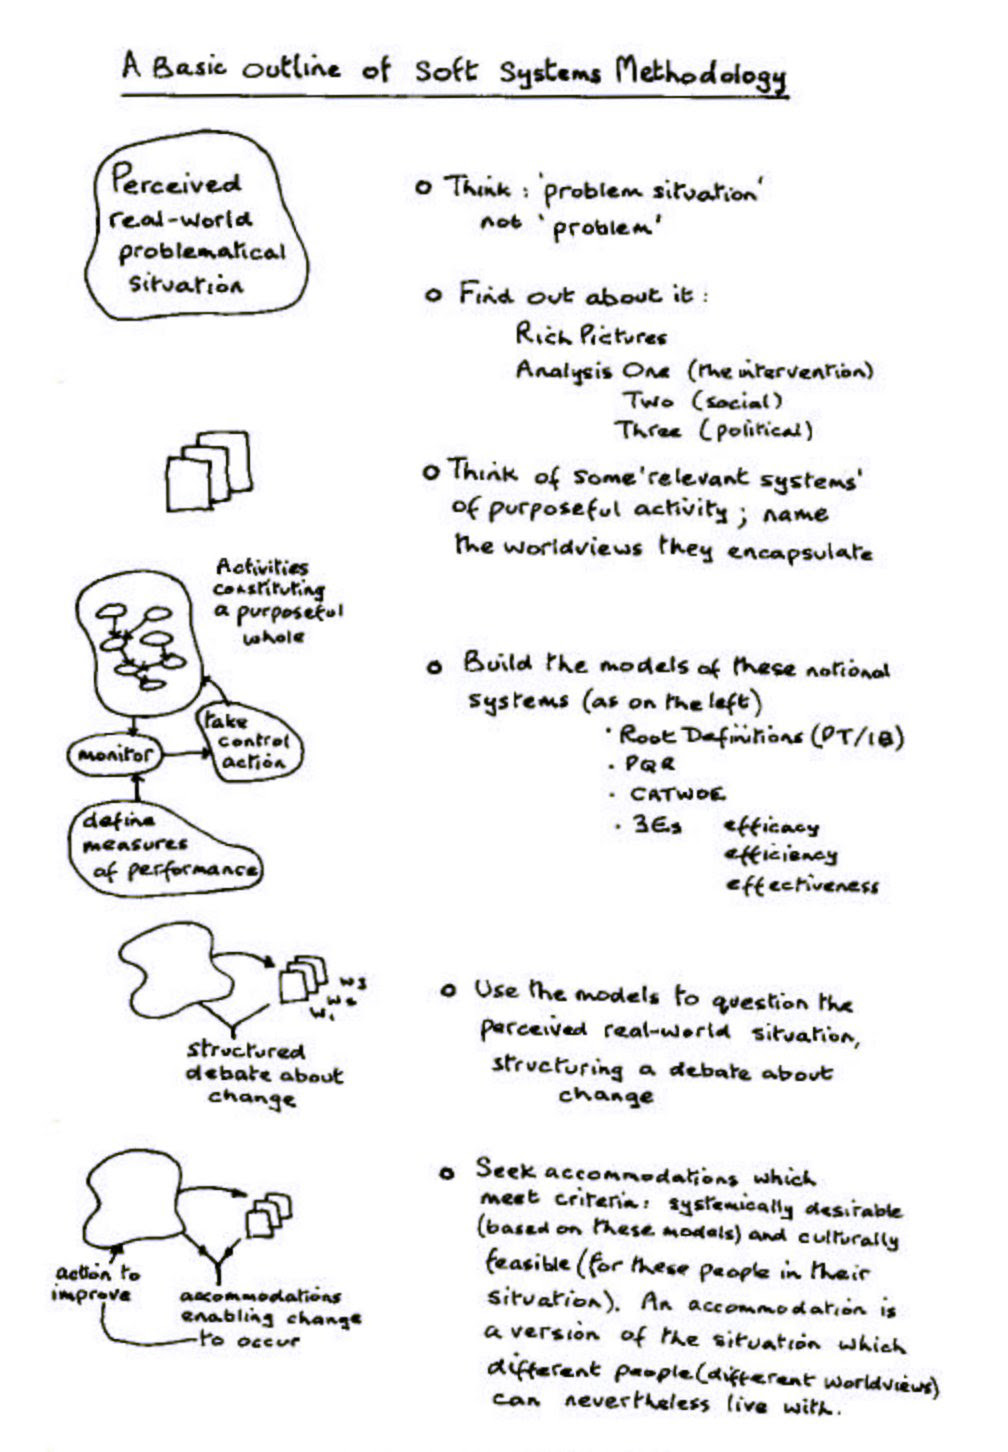 A Basic outline of Soft Systems Methodology
Perceived
real-world
problematical
situation
o Think: 'problem situation'
not 'problem'
o Find out about it:
Rich Pictures
Analysis One (the intervention)
Two (social)
Three (political)
o Think of some 'relevant systems'
of purposeful activity; name
the worldviews they encapsulate
Activities
constituting
a purposeful
whole
take
control
action
monitor
define
measures
of performance
o Build the models of these notional
systems (as on the left)
· Root Definitions (PT/IB)
· PQR
· CATWOE
· 3Es efficacy
efficiency
effectiveness
W3
W2
W1
structured
debate about
change
o Use the models to question the
perceived real-world situation,
structuring a debate about
change
action to
improve
accommodations
enabling change
to occur
o Seek accommodations which
meet criteria: systemically desirable
(based on these models) and culturally
feasible (for these people in their
situation). An accommodation is
a version of the situation which
different people (different worldviews)
can nevertheless live with.